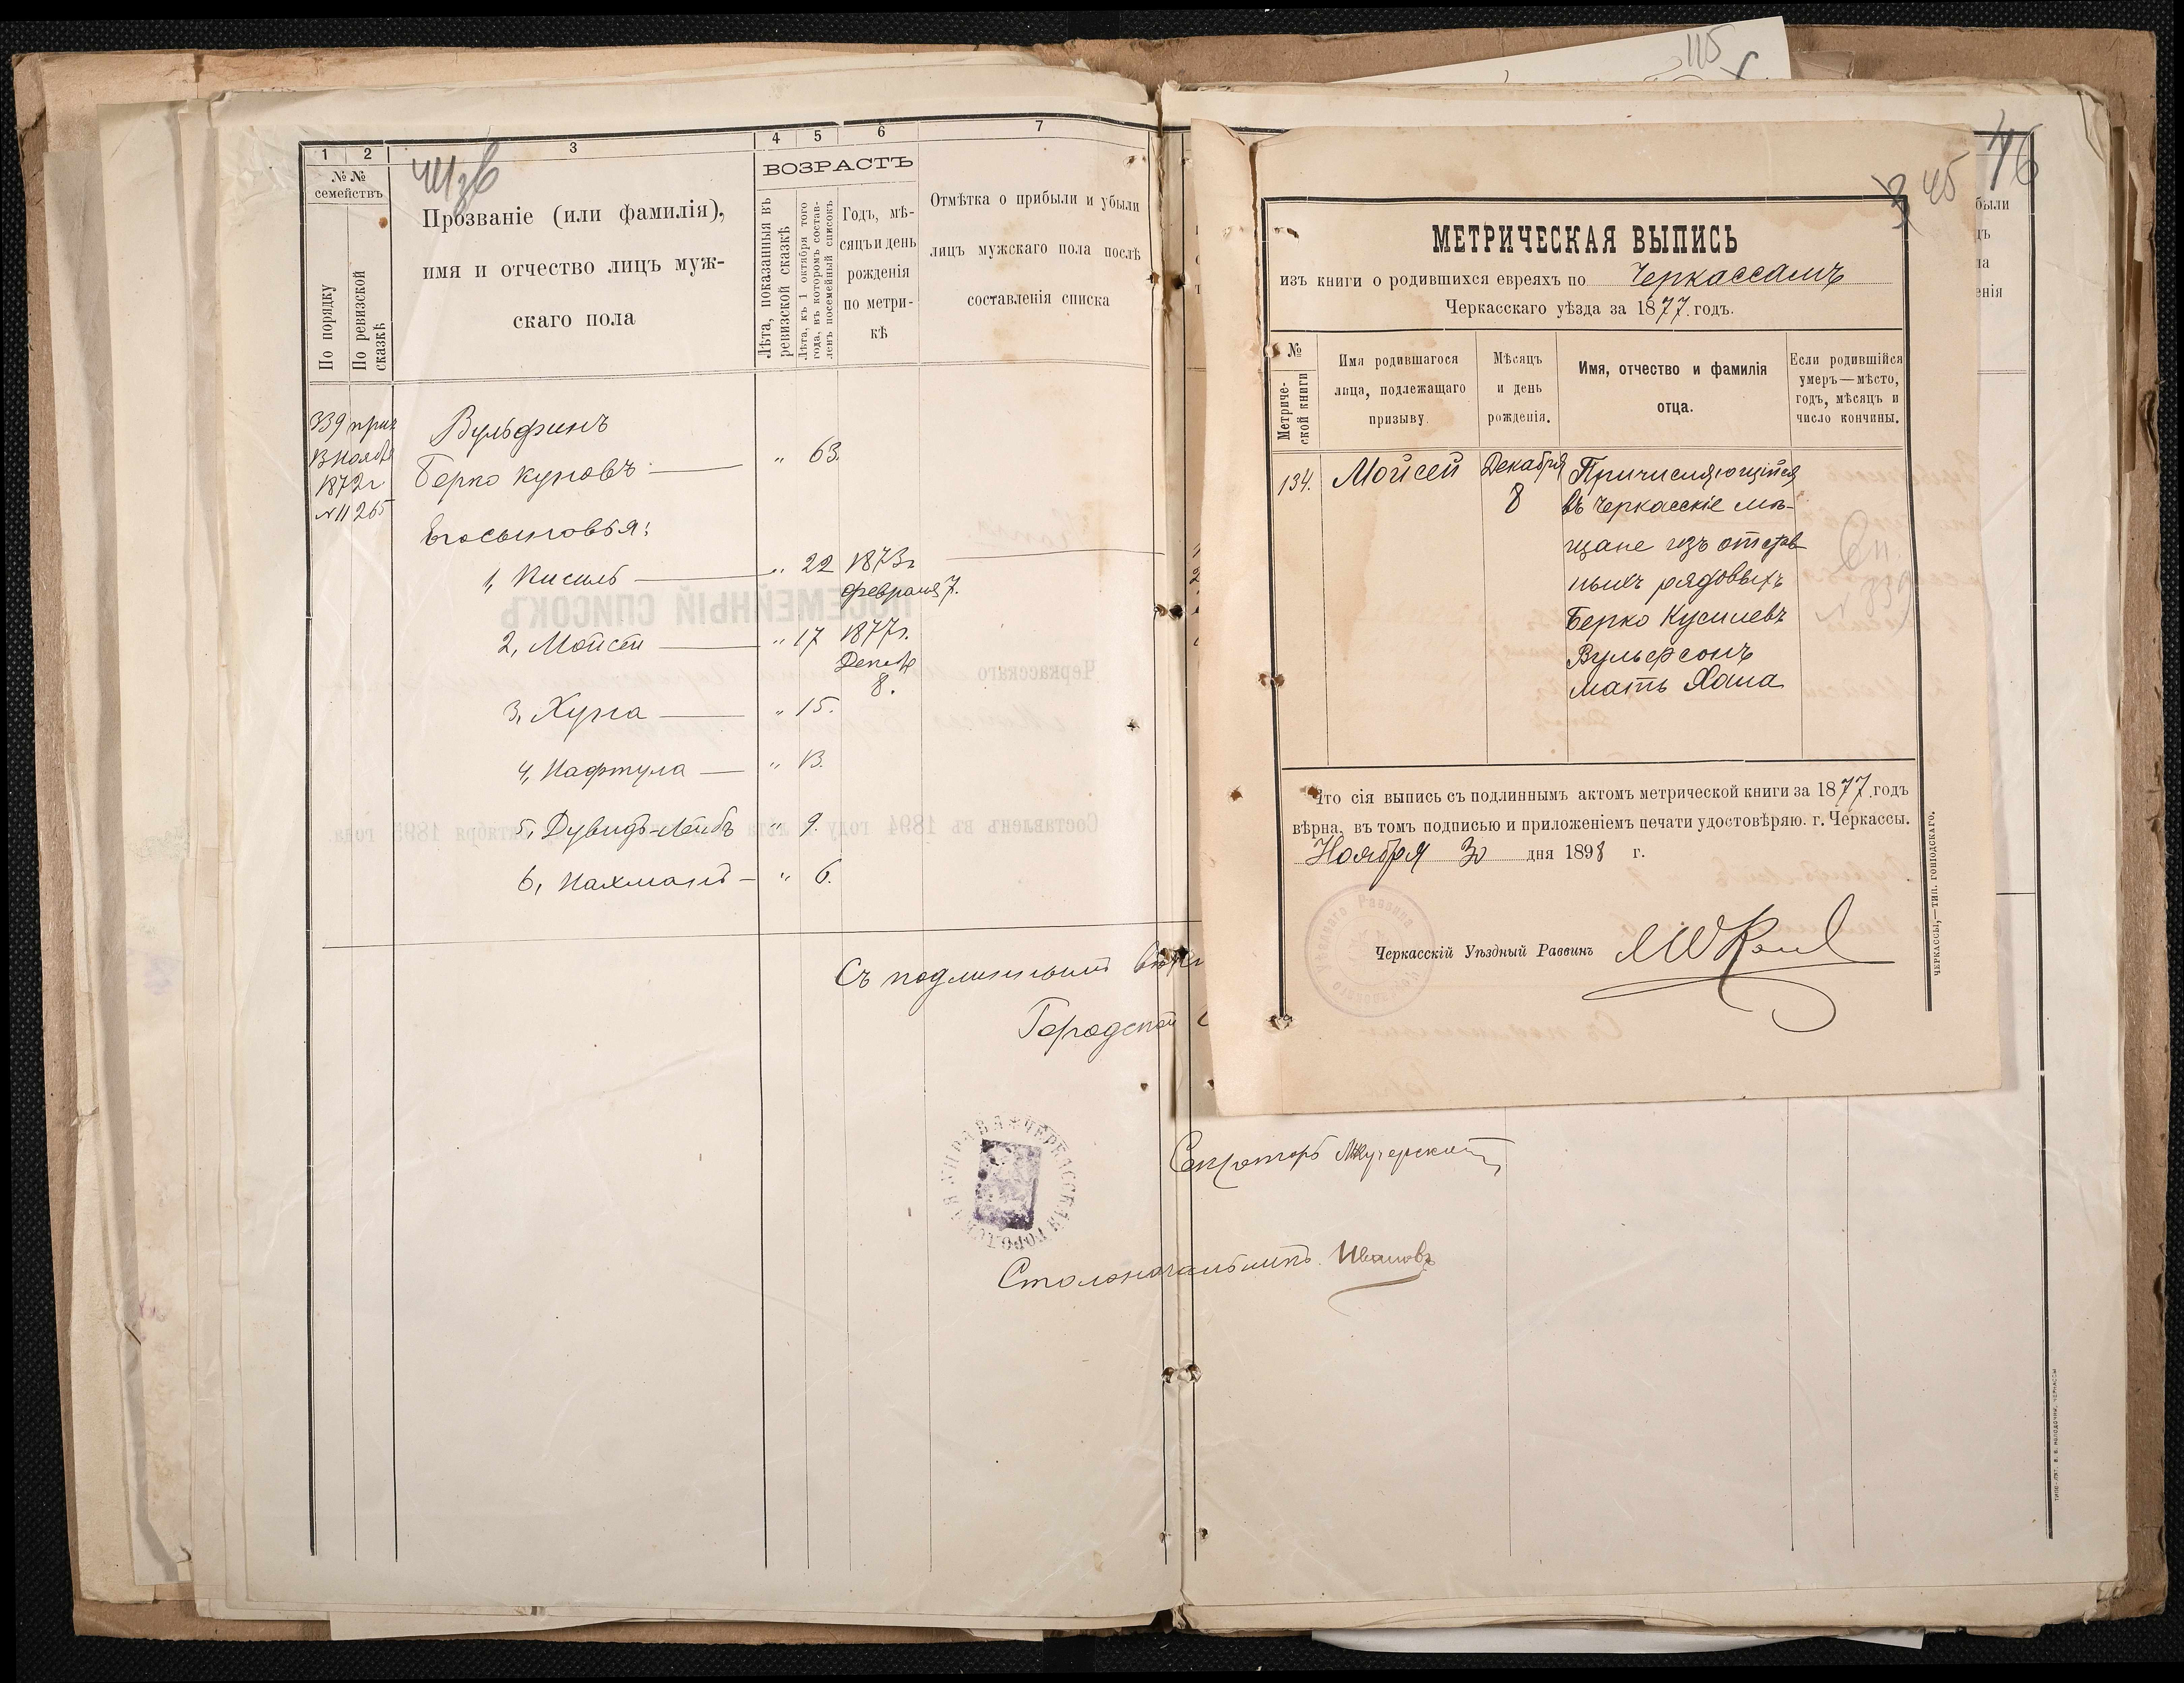 115
1
2
3
4
5
6
7
№ №
семействъ
По порядку
По ревизской
сказкѣ
Прозваніе (или фамилія),
имя и отчество лицъ муж-
скаго пола
ВОЗРАСТЪ
Лѣта, показанныя въ
ревизской сказкѣ
Лѣта, къ 1 октября того
года, въ которомъ состав-
ленъ посемейный списокъ
Годъ, мѣ-
сяцъ и день
рожденія
по метри-
кѣ
Отмѣтка о прибыли и убыли
лицъ мужскаго пола послѣ
составленія списка
339
13 Ноября
1872 г.
№ 11265
Вульфинъ
Берко Куновъ — " 63.
Его сыновья:
1, Кисиль — " 22 1873 г.
Февраля 7.
2, Мойсей — " 17 1877 г.
Декаб
8.
3, Хуна — " 15.
4, Нафтула — " 13.
5, Дувидъ-Лейбъ " 9.
6, Нахманъ — " 6.
Съ подлиннымъ
Городской
ЧЕРКАССКАЯ ГОРОДСКАЯ УПРАВА
Секретарь
Столоначальникъ Ивановъ
45
46
были
МЕТРИЧЕСКАЯ ВЫПИСЬ
изъ книги о родившихся евреяхъ по Черкассамъ
Черкасскаго уѣзда за 1877 годъ.
№
Метриче-
ской книги
Имя родившагося
лица, подлежащаго
призыву.
Мѣсяцъ
и день
рожденія.
Имя, отчество и фамилія
отца.
Если родившійся
умеръ—мѣсто,
годъ, мѣсяцъ и
число кончины.
134.
Мойсей
Декабря
8
Причисляющійся
въ Черкасскіе мѣ-
щане изъ отстав-
ныхъ рядовыхъ
Берко Кусилевъ
Вульфсонъ
мать Хана
№ 339
Что сія выпись съ подлиннымъ актомъ метрической книги за 1877 годъ
вѣрна, въ томъ подписью и приложеніемъ печати удостовѣряю. г. Черкассы.
Ноября 30 дня 1898 г.
Черкасскій Уѣздный Раввинъ
ЧЕРКАССЫ,—ТИП. ГОРОДСКАГО.